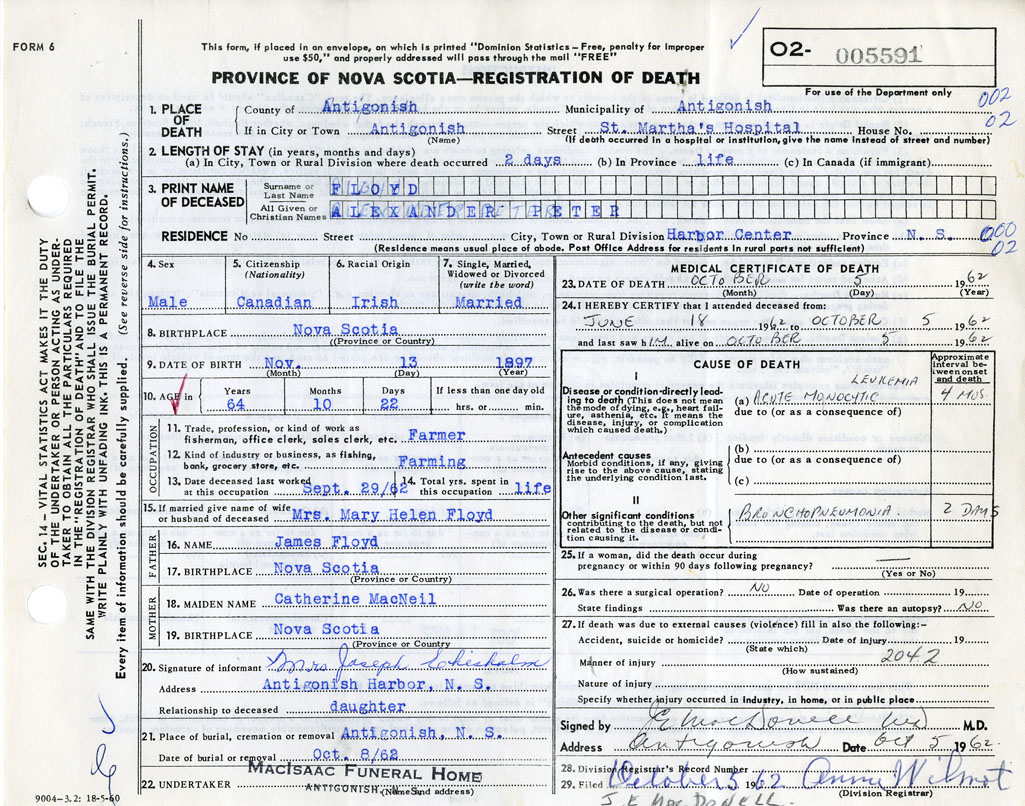 FORM 6
This form, if placed in an envelope, on which is printed "Dominion Statistics – Free, penalty for improper
use $50," and properly addressed will pass through the mail "FREE"
PROVINCE OF NOVA SCOTIA—REGISTRATION OF DEATH
O2- 005591
For use of the Department only
002
02
1. PLACE OF DEATH
County of Antigonish Municipality of Antigonish
If in City or Town Antigonish Street St. Martha's Hospital House No.
(Name) (If death occurred in a hospital or institution, give the name instead of street and number)
2. LENGTH OF STAY (in years, months and days)
(a) In City, Town or Rural Division where death occurred 2 days (b) In Province life (c) In Canada (if immigrant)
3. PRINT NAME OF DECEASED
Surname or Last Name FLOYD
All Given or Christian Names ALEXANDER PETER
RESIDENCE No Street City, Town or Rural Division Harbor Center Province N. S.
(Residence means usual place of abode. Post Office Address for residents in rural parts not sufficient)
000
02
4. Sex
Male
5. Citizenship (Nationality)
Canadian
6. Racial Origin
Irish
7. Single, Married, Widowed or Divorced (write the word)
Married
8. BIRTHPLACE Nova Scotia
(Province or Country)
9. DATE OF BIRTH Nov. 13 1897
(Month) (Day) (Year)
10. AGE in Years Months Days If less than one day old
64 10 22 hrs. or min.
OCCUPATION
11. Trade, profession or kind of work as
fisherman, office clerk, sales clerk, etc. Farmer
12. Kind of industry or business, as fishing,
bank, grocery store, etc. Farming
13. Date deceased last worked at this occupation Sept. 29/62
14. Total yrs. spent in this occupation life
15. If married give name of wife
or husband of deceased Mrs. Mary Helen Floyd
FATHER
16. NAME James Floyd
17. BIRTHPLACE Nova Scotia
(Province or Country)
MOTHER
18. MAIDEN NAME Catherine MacNeil
19. BIRTHPLACE Nova Scotia
(Province or Country)
20. Signature of informant Mrs Joseph Chisholm
Address Antigonish Harbor, N. S.
Relationship to deceased daughter
21. Place of burial, cremation or removal Antigonish, N. S.
Date of burial or removal Oct. 8/62
22. UNDERTAKER MACISAAC FUNERAL HOME
ANTIGONISH, N. S.
(Name and address)
MEDICAL CERTIFICATE OF DEATH
23. DATE OF DEATH OCTOBER 5 1962
(Month) (Day) (Year)
24. I HEREBY CERTIFY that I attended deceased from:
JUNE 18 1962 to OCTOBER 5 1962
and last saw hIM alive on OCTOBER 5 1962
CAUSE OF DEATH
Approximate interval between onset and death
I
Disease or condition directly leading to death (This does not mean the mode of dying, e.g., heart failure, asthenia, etc. It means the disease, injury, or complication which caused death.)
LEUKEMIA
(a) ACUTE MONOCYTIC 4 MOS.
due to (or as a consequence of)
Antecedent causes
Morbid conditions, if any, giving rise to the above cause, stating the underlying condition last.
(b)
due to (or as a consequence of)
(c)
II
Other significant conditions
contributing to the death, but not related to the disease or condition causing it.
BRONCHOPNEUMONIA. 2 DAYS
25. If a woman, did the death occur during
pregnancy or within 90 days following pregnancy?
(Yes or No)
26. Was there a surgical operation? NO Date of operation 19
State findings Was there an autopsy? NO
27. If death was due to external causes (violence) fill in also the following:-
Accident, suicide or homicide? Date of injury 19
(State which)
2042
Manner of injury
(How sustained)
Nature of injury
Specify whether injury occurred in industry, in home, or in public place
Signed by J E MacDonell MD M.D.
Address Antigonish Date Oct 5 1962
28. Division Registrar's Record Number
29. Filed October 5 1962 Anne Wilmot
(Division Registrar)
J. E. MACDONELL.
SEC. 14 – VITAL STATISTICS ACT MAKES IT THE DUTY
OF THE UNDERTAKER OR PERSON ACTING AS UNDER-
TAKER TO OBTAIN ALL THE PARTICULARS REQUIRED
IN THE "REGISTRATION OF DEATH" AND TO FILE THE
SAME WITH THE DIVISION REGISTRAR WHO SHALL ISSUE THE BURIAL PERMIT.
WRITE PLAINLY WITH UNFADING INK. THIS IS A PERMANENT RECORD.
Every item of information should be carefully supplied. (See reverse side for instructions.)
9004-3.2: 18-5-60